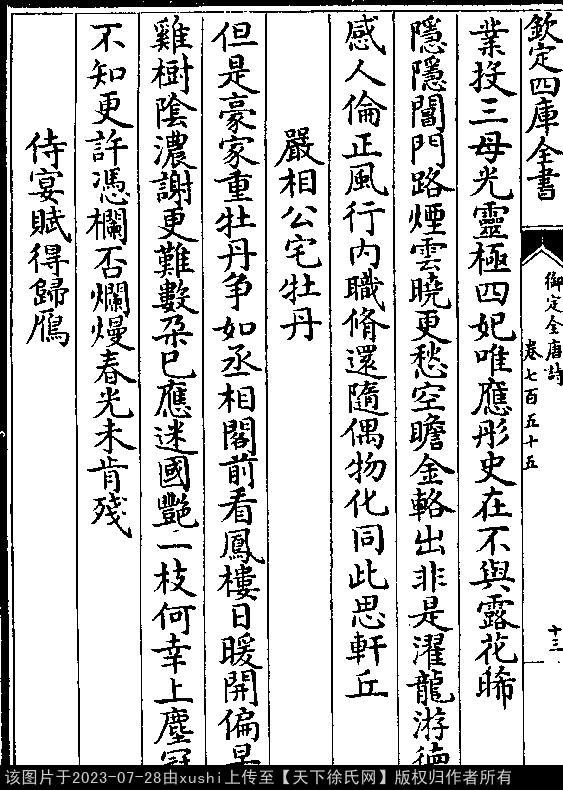 欽定四庫全書
御定全唐詩
卷七百五十五
十三
業投三母光靈極四妃唯應彤史在不與露花晞
隱隱閶門路煙雲曉更愁空瞻金輅出非是濯龍游德
感人倫正風行内職脩還隨偶物化同此思軒丘
嚴相公宅牡丹
但是豪家重牡丹争如丞相閣前看鳳樓日暖開偏早
雞樹陰濃謝更難數朶已應迷國艷一枝何幸上塵冠
不知更許憑欄否爛熳春光未肯殘
侍宴賦得歸鴈
该图片于2023-07-28由xushi上传至【天下徐氏网】版权归作者所有